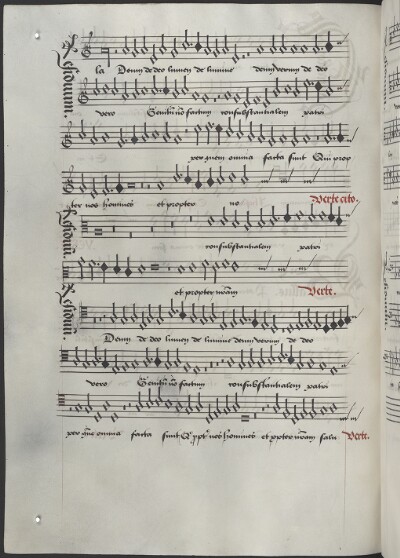 la Deum de deo lumen de lumine deum verum de deo
vero Genitū nō factum consubstantialem patri
per quem omnia facta sunt Qui prop
pter nos homines et propter no Verte cito.
consubstantialem patri
et propter nrām Verte.
Deum de deo lumen de lumine deum verum de deo
vero Genitū nō factum consubstantialem patri
per quē omnia facta sunt Q ppt nos homines et ppter nrām salu Verte.